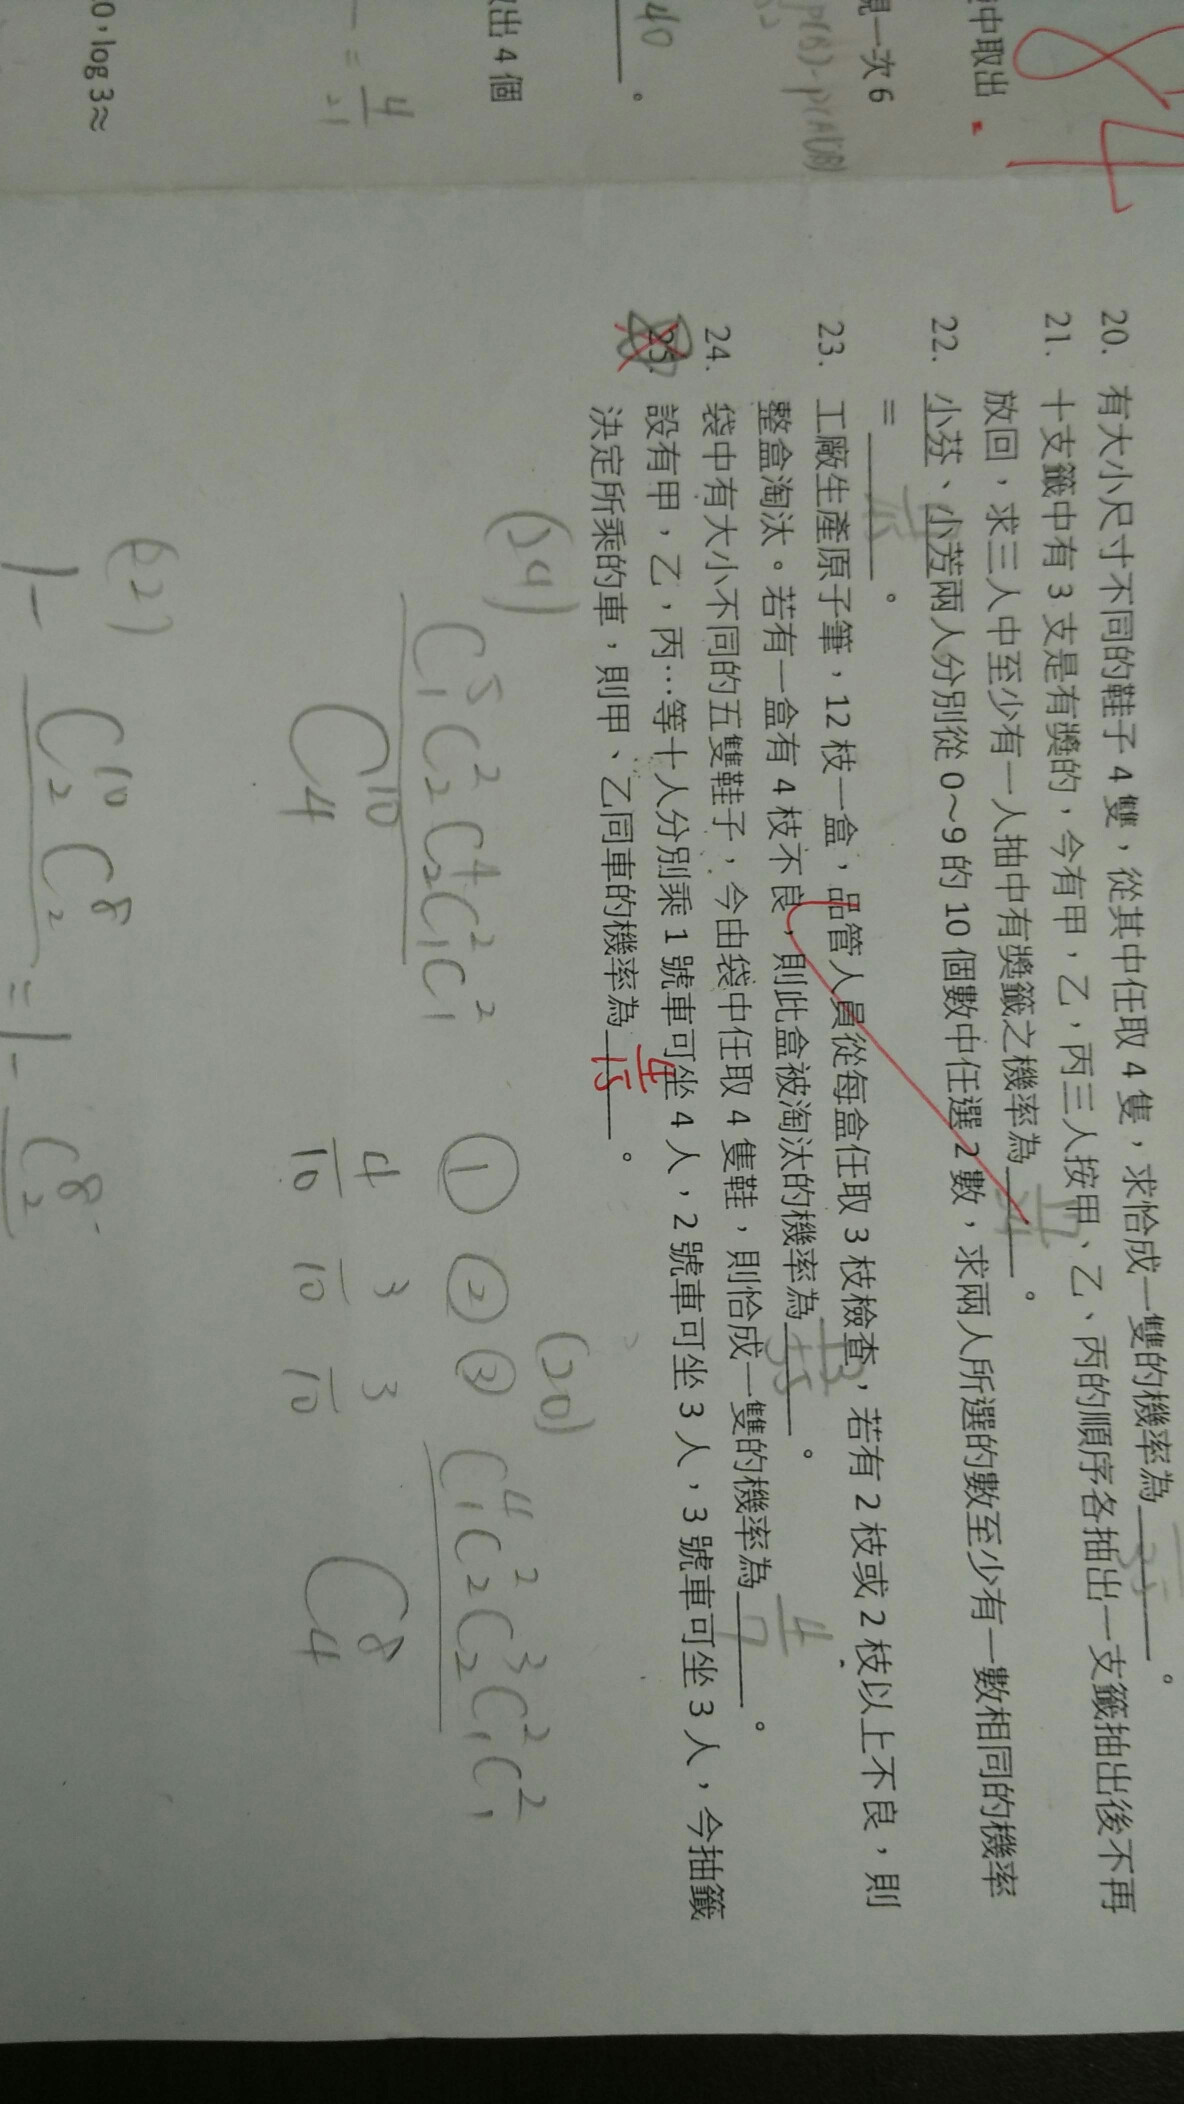 84
中取出
現一次 6
P(B)-P(A∩B)
40
。
取出 4 個
= 4/21
0，log 3≈
20. 有大小尺寸不同的鞋子 4 雙，從其中任取 4 隻，求恰成一雙的機率為 35 。
21. 十支籤中有 3 支是有獎的，今有甲，乙，丙三人按甲、乙、丙的順序各抽出一支籤抽出後不再
放回，求三人中至少有一人抽中有獎籤之機率為 17/24 。
22. 小芬、小芳兩人分別從 0～9 的 10 個數中任選 2 數，求兩人所選的數至少有一數相同的機率
= 。
23. 工廠生產原子筆，12 枝一盒，品管人員從每盒任取 3 枝檢查，若有 2 枝或 2 枝以上不良，則
整盒淘汰。若有一盒有 4 枝不良，則此盒被淘汰的機率為 13/55 。
24. 袋中有大小不同的五雙鞋子，今由袋中任取 4 隻鞋，則恰成一雙的機率為 4/7 。
25. 設有甲，乙，丙…等十人分別乘 1 號車可坐 4 人，2 號車可坐 3 人，3 號車可坐 3 人，今抽籤
決定所乘的車，則甲、乙同車的機率為 4/15 。
(24)
C⁵₁C²₂C⁴₂C²₁C²₁
C¹⁰₄
① ② ③
4/10 3/10 3/10
(20)
C⁴₁C²₂C³₂C²₁C²₁
C⁸₄
(22)
1- C¹⁰₂C⁸₂ = 1- C⁸₂